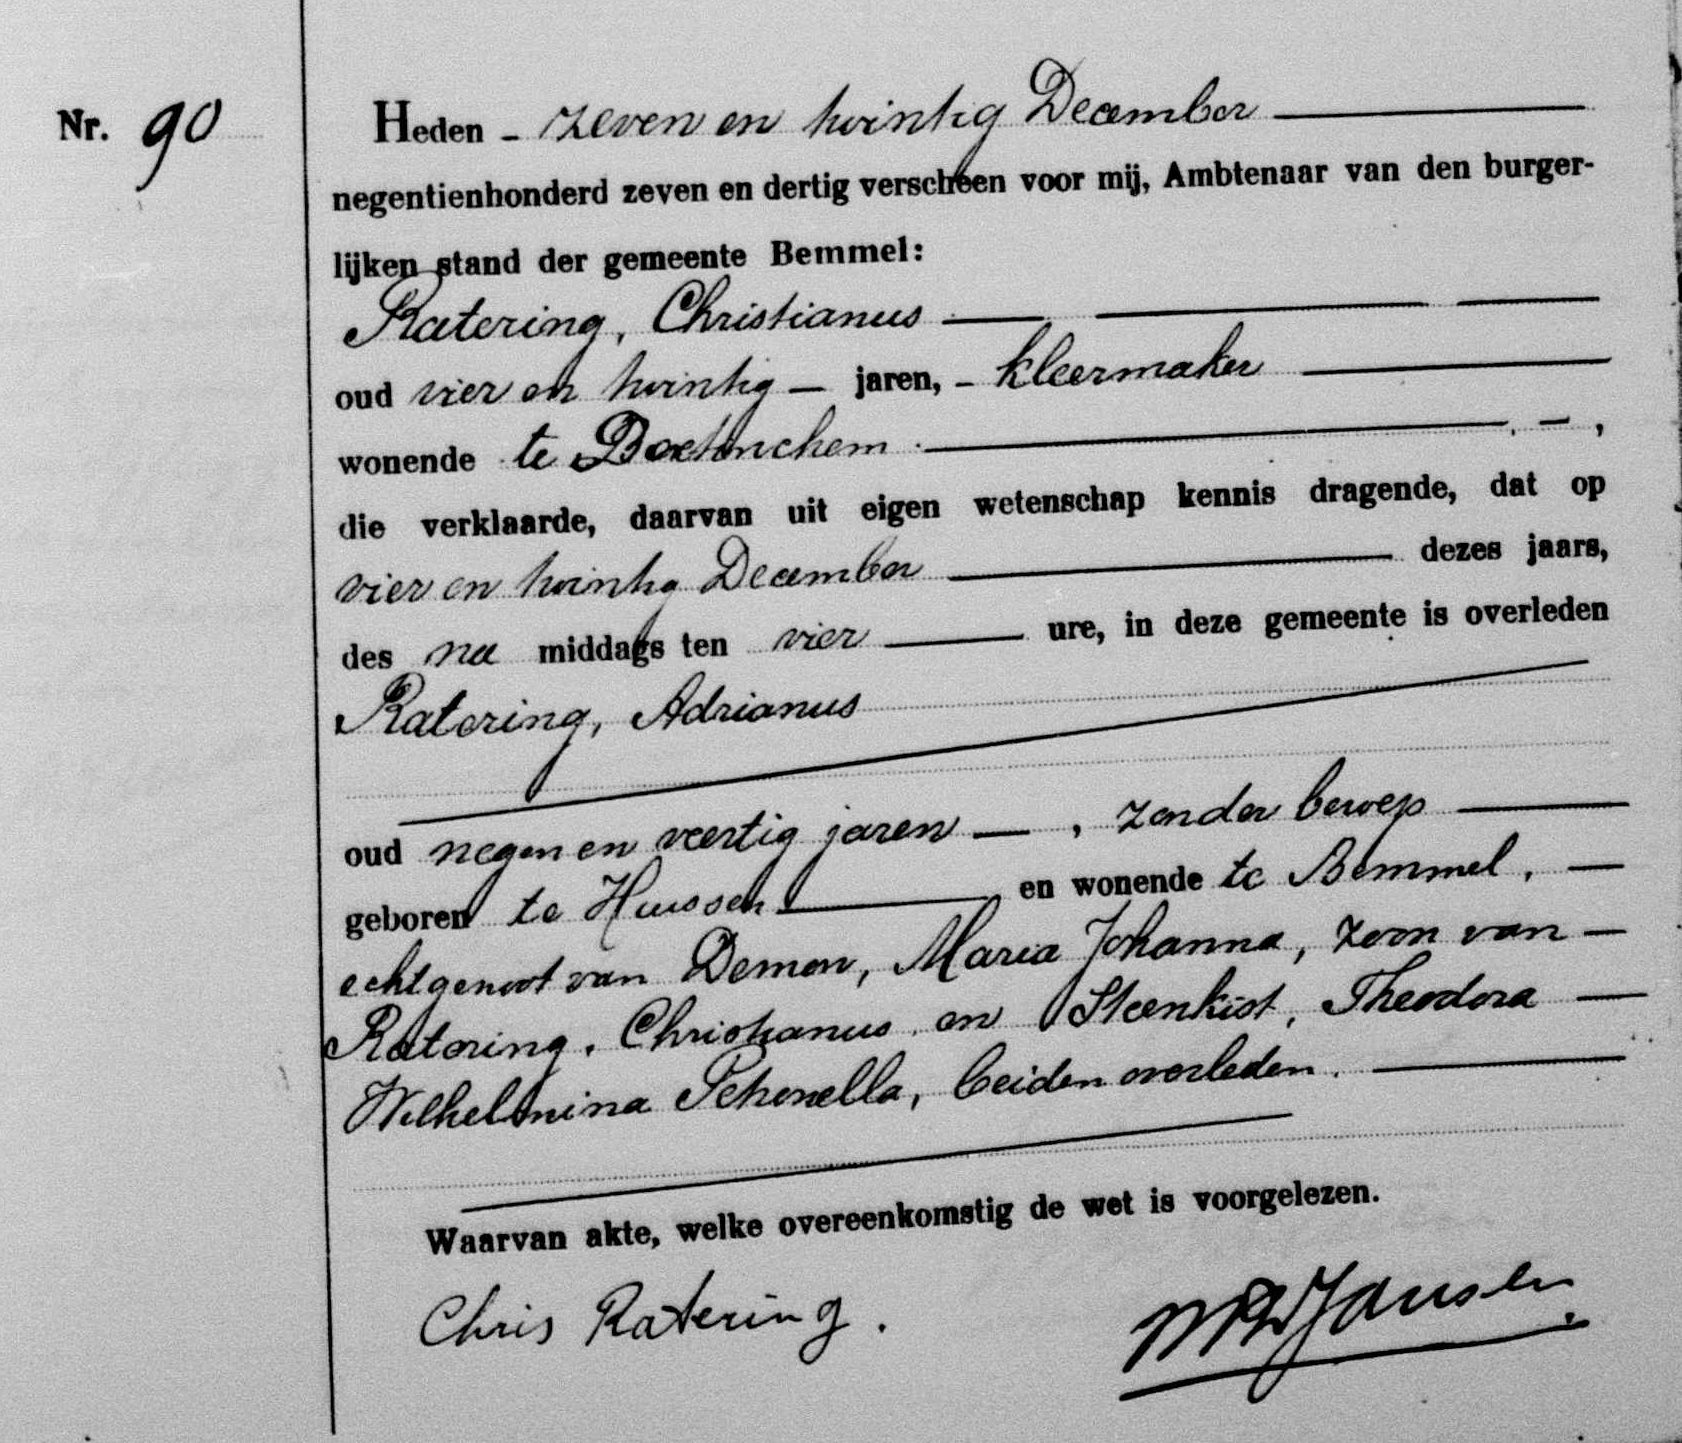 Nr. 90
Heden - zeven en twintig December
negentienhonderd zeven en dertig verscheen voor mij, Ambtenaar van den burger-
lijken stand der gemeente Bemmel:
Ratering, Christianus
oud vier en twintig - jaren, - kleermaker
wonende te Doetinchem - ,
die verklaarde, daarvan uit eigen wetenschap kennis dragende, dat op
vier en twintig December dezes jaars,
des na middags ten vier ure, in deze gemeente is overleden
Ratering, Adrianus
oud negen en veertig jaren - , zonder beroep
geboren te Huissen en wonende te Bemmel, -
echtgenoot van Demon, Maria Johanna, zoon van -
Ratering, Christianus en Steenkist, Theodora -
Wilhelmina Petronella, beiden overleden.
Waarvan akte, welke overeenkomstig de wet is voorgelezen.
Chris Ratering.
Jansen